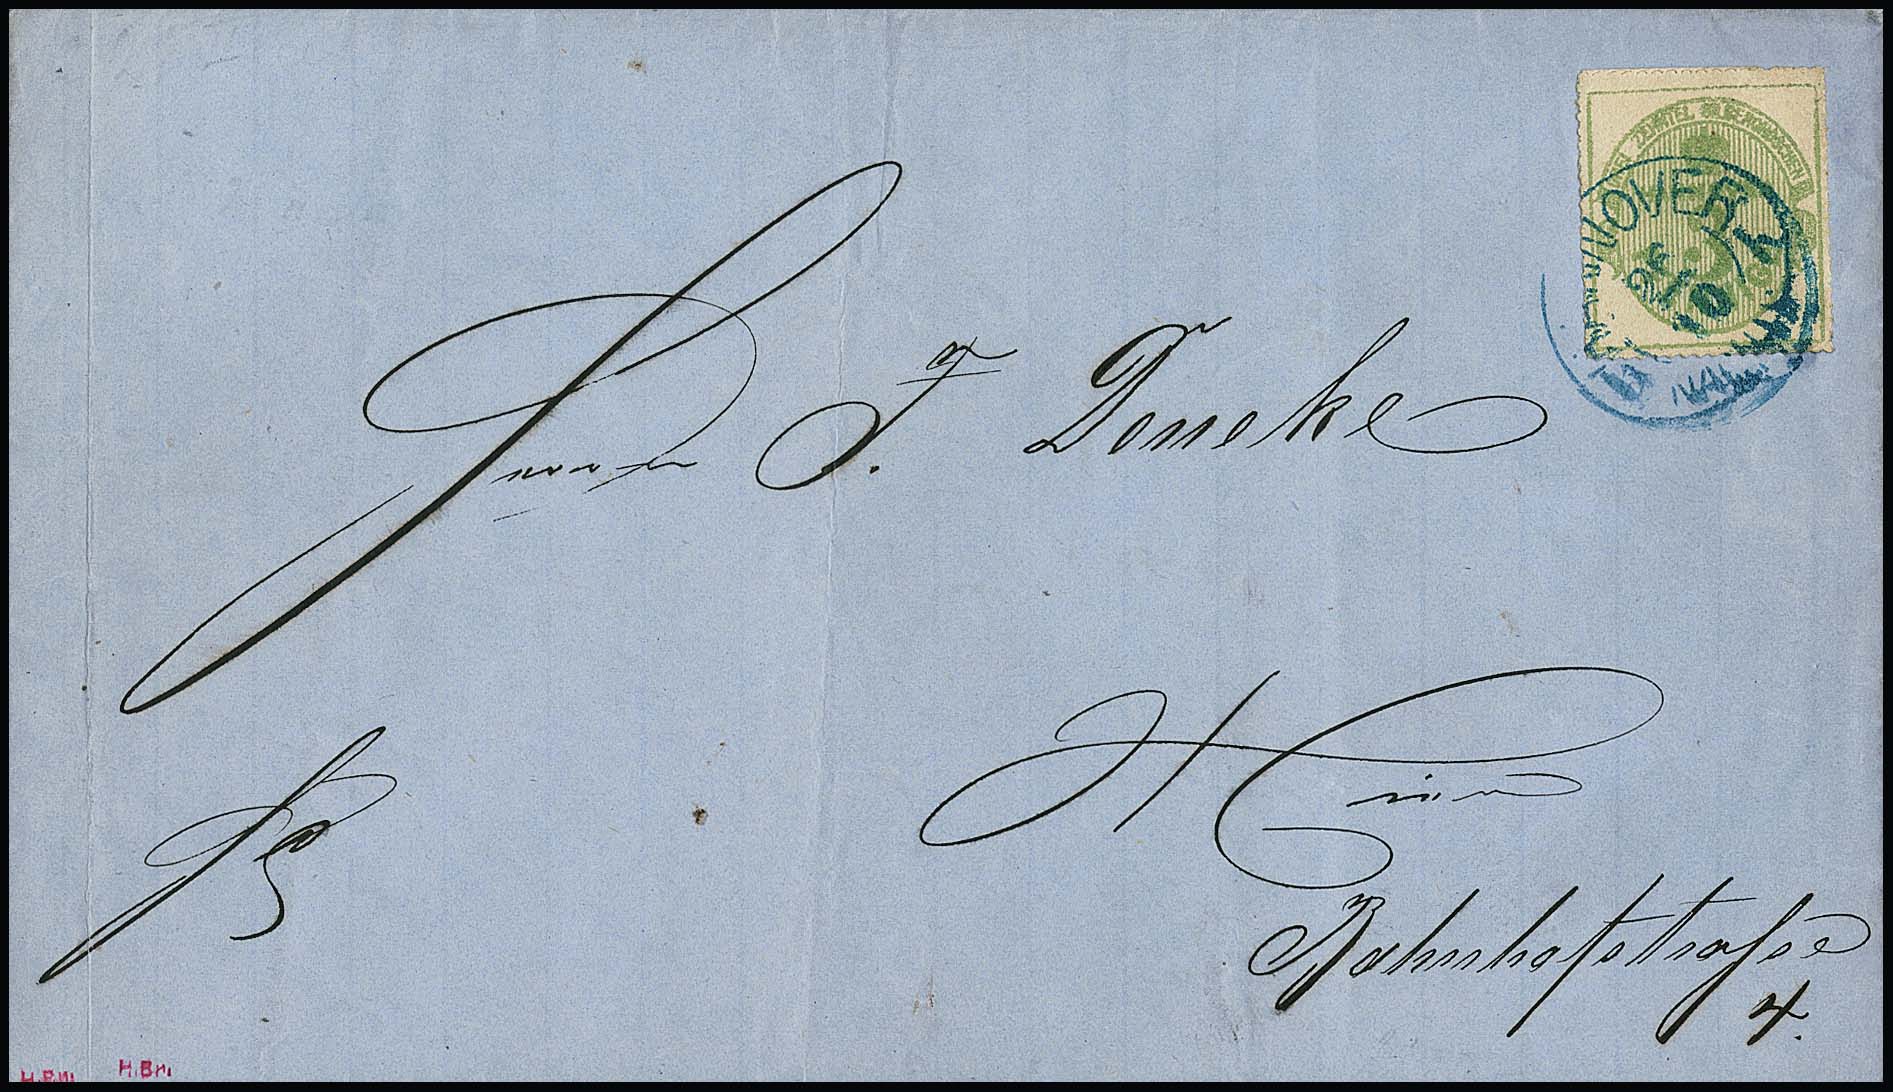 ZEHNTEL SILBERGROSCHEN
HANNOVER
26
10
Herrn F. Deneke
Hier
Bahnhofstraße
4.
H.Bri.
H.Bri.